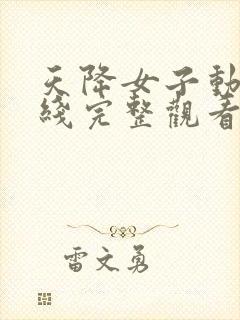 天降女子動
綫完整觀看
雷文勇